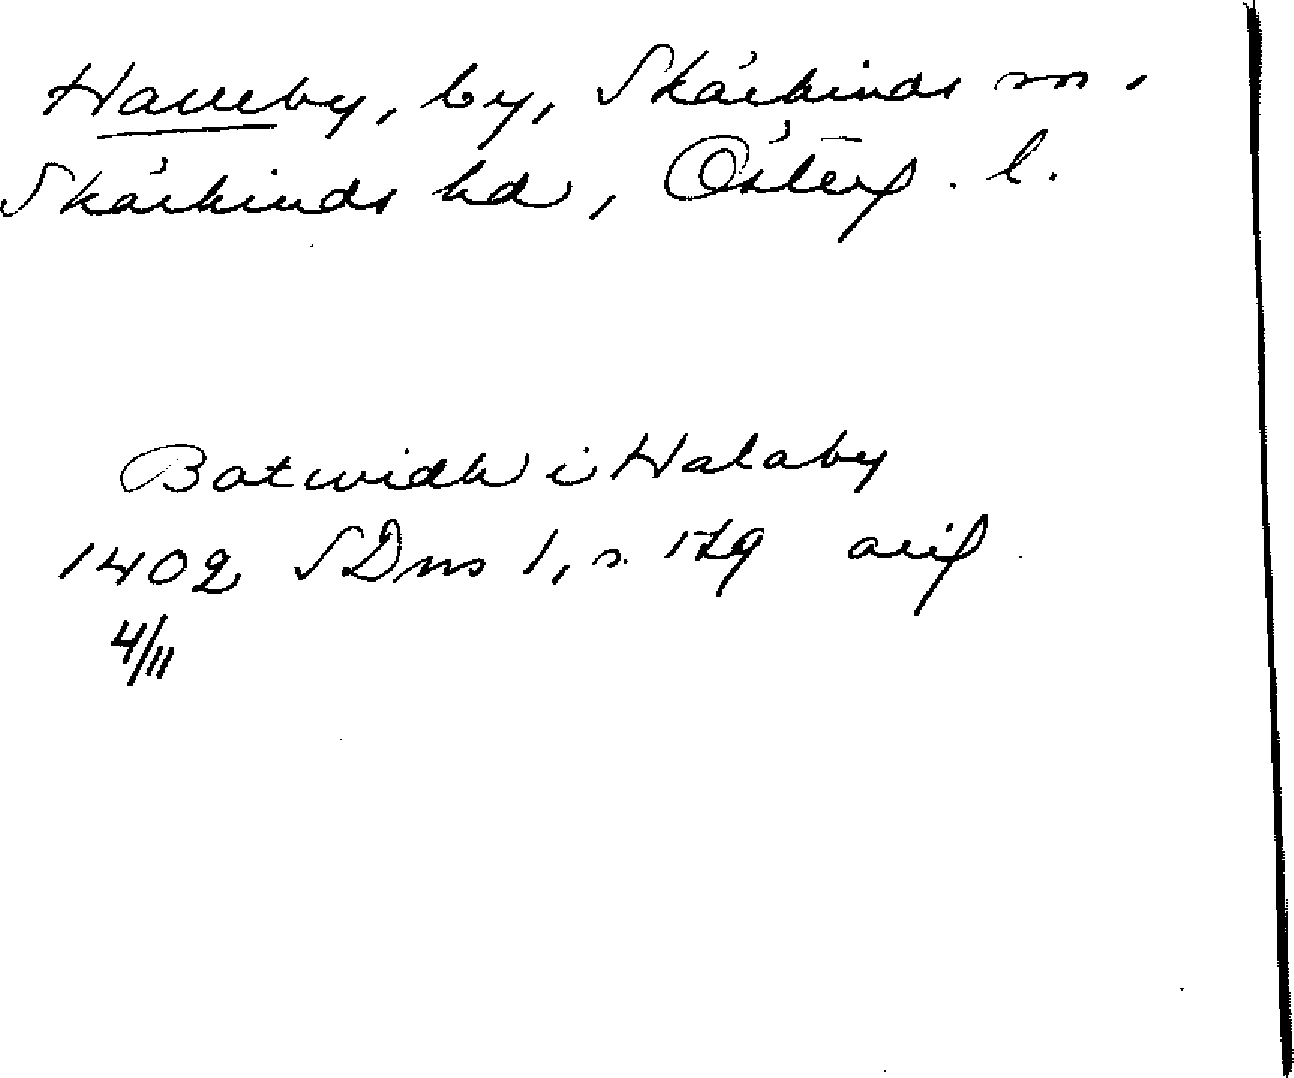 Halleby, by, Skärkinds sn,
Skärkinds hd, Österg. l.
Botwidh i Halaby
1402 SDns 1, s. 129 orig.
4/11